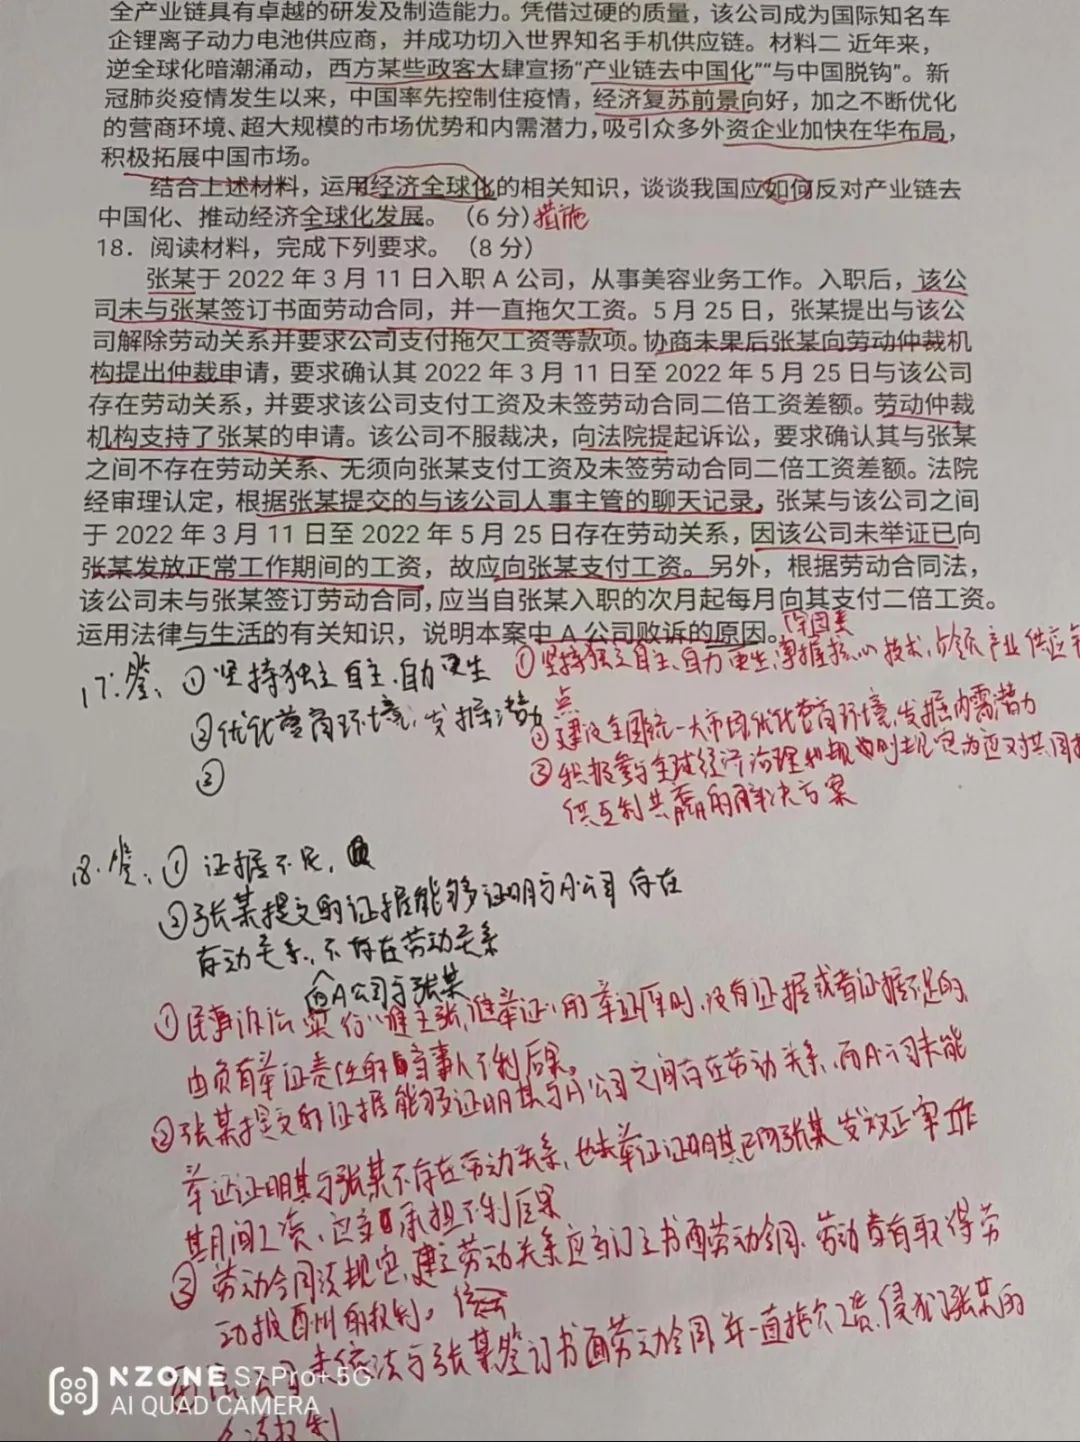 全产业链具有卓越的研发及制造能力。凭借过硬的质量，该公司成为国际知名车
企锂离子动力电池供应商，并成功切入世界知名手机供应链。材料二 近年来，
逆全球化暗潮涌动，西方某些政客大肆宣扬“产业链去中国化”“与中国脱钩”。新
冠肺炎疫情发生以来，中国率先控制住疫情，经济复苏前景向好，加之不断优化
的营商环境、超大规模的市场优势和内需潜力，吸引众多外资企业加快在华布局，
积极拓展中国市场。
结合上述材料，运用经济全球化的相关知识，谈谈我国应如何反对产业链去
中国化、推动经济全球化发展。（6分）措施
18．阅读材料，完成下列要求。（8分）
张某于 2022 年 3 月 11 日入职 A 公司，从事美容业务工作。入职后，该公
司未与张某签订书面劳动合同，并一直拖欠工资。5 月 25 日，张某提出与该公
司解除劳动关系并要求公司支付拖欠工资等款项。协商未果后张某向劳动仲裁机
构提出仲裁申请，要求确认其 2022 年 3 月 11 日至 2022 年 5 月 25 日与该公司
存在劳动关系，并要求该公司支付工资及未签劳动合同二倍工资差额。劳动仲裁
机构支持了张某的申请。该公司不服裁决，向法院提起诉讼，要求确认其与张某
之间不存在劳动关系、无须向张某支付工资及未签劳动合同二倍工资差额。法院
经审理认定，根据张某提交的与该公司人事主管的聊天记录，张某与该公司之间
于 2022 年 3 月 11 日至 2022 年 5 月 25 日存在劳动关系，因该公司未举证已向
张某发放正常工作期间的工资，故应向张某支付工资。另外，根据劳动合同法，
该公司未与张某签订劳动合同，应当自张某入职的次月起每月向其支付二倍工资。
运用法律与生活的有关知识，说明本案中 A 公司败诉的原因。原因类
17.答、①坚持独立自主、自力更生
②优化营商环境，发掘潜力
③
①坚持独立自主、自力更生，掌握核心技术，占领产业供应
点
②建设全国统一大市场优化营商环境，发掘内需潜力
③积极参与全球经济治理和规则规定为应对共同
供互利共赢的解决方案
18.答、①证据不足，
②张某提交的证据能够证明与A公司存在
劳动关系，不存在劳动关系
而A公司与张某
①民事诉讼实行“谁主张，谁举证”的举证原则，没有证据或者证据不足的，
由负有举证责任的当事人不利后果。
②张某提交的证据能够证明其与A公司之间存在劳动关系，而A公司未能
举证证明其与张某不存在劳动关系，也未举证证明其已向张某发放正常工作
期间工资，应当承担不利后果
③劳动合同法规定，建立劳动关系应当订立书面劳动合同，劳动者有取得劳
动报酬的权利。
公司未依法与张某签订书面劳动合同并一直拖欠工资，侵犯张某的
合法权利
NZONE S7 Pro+ 5G
AI QUAD CAMERA